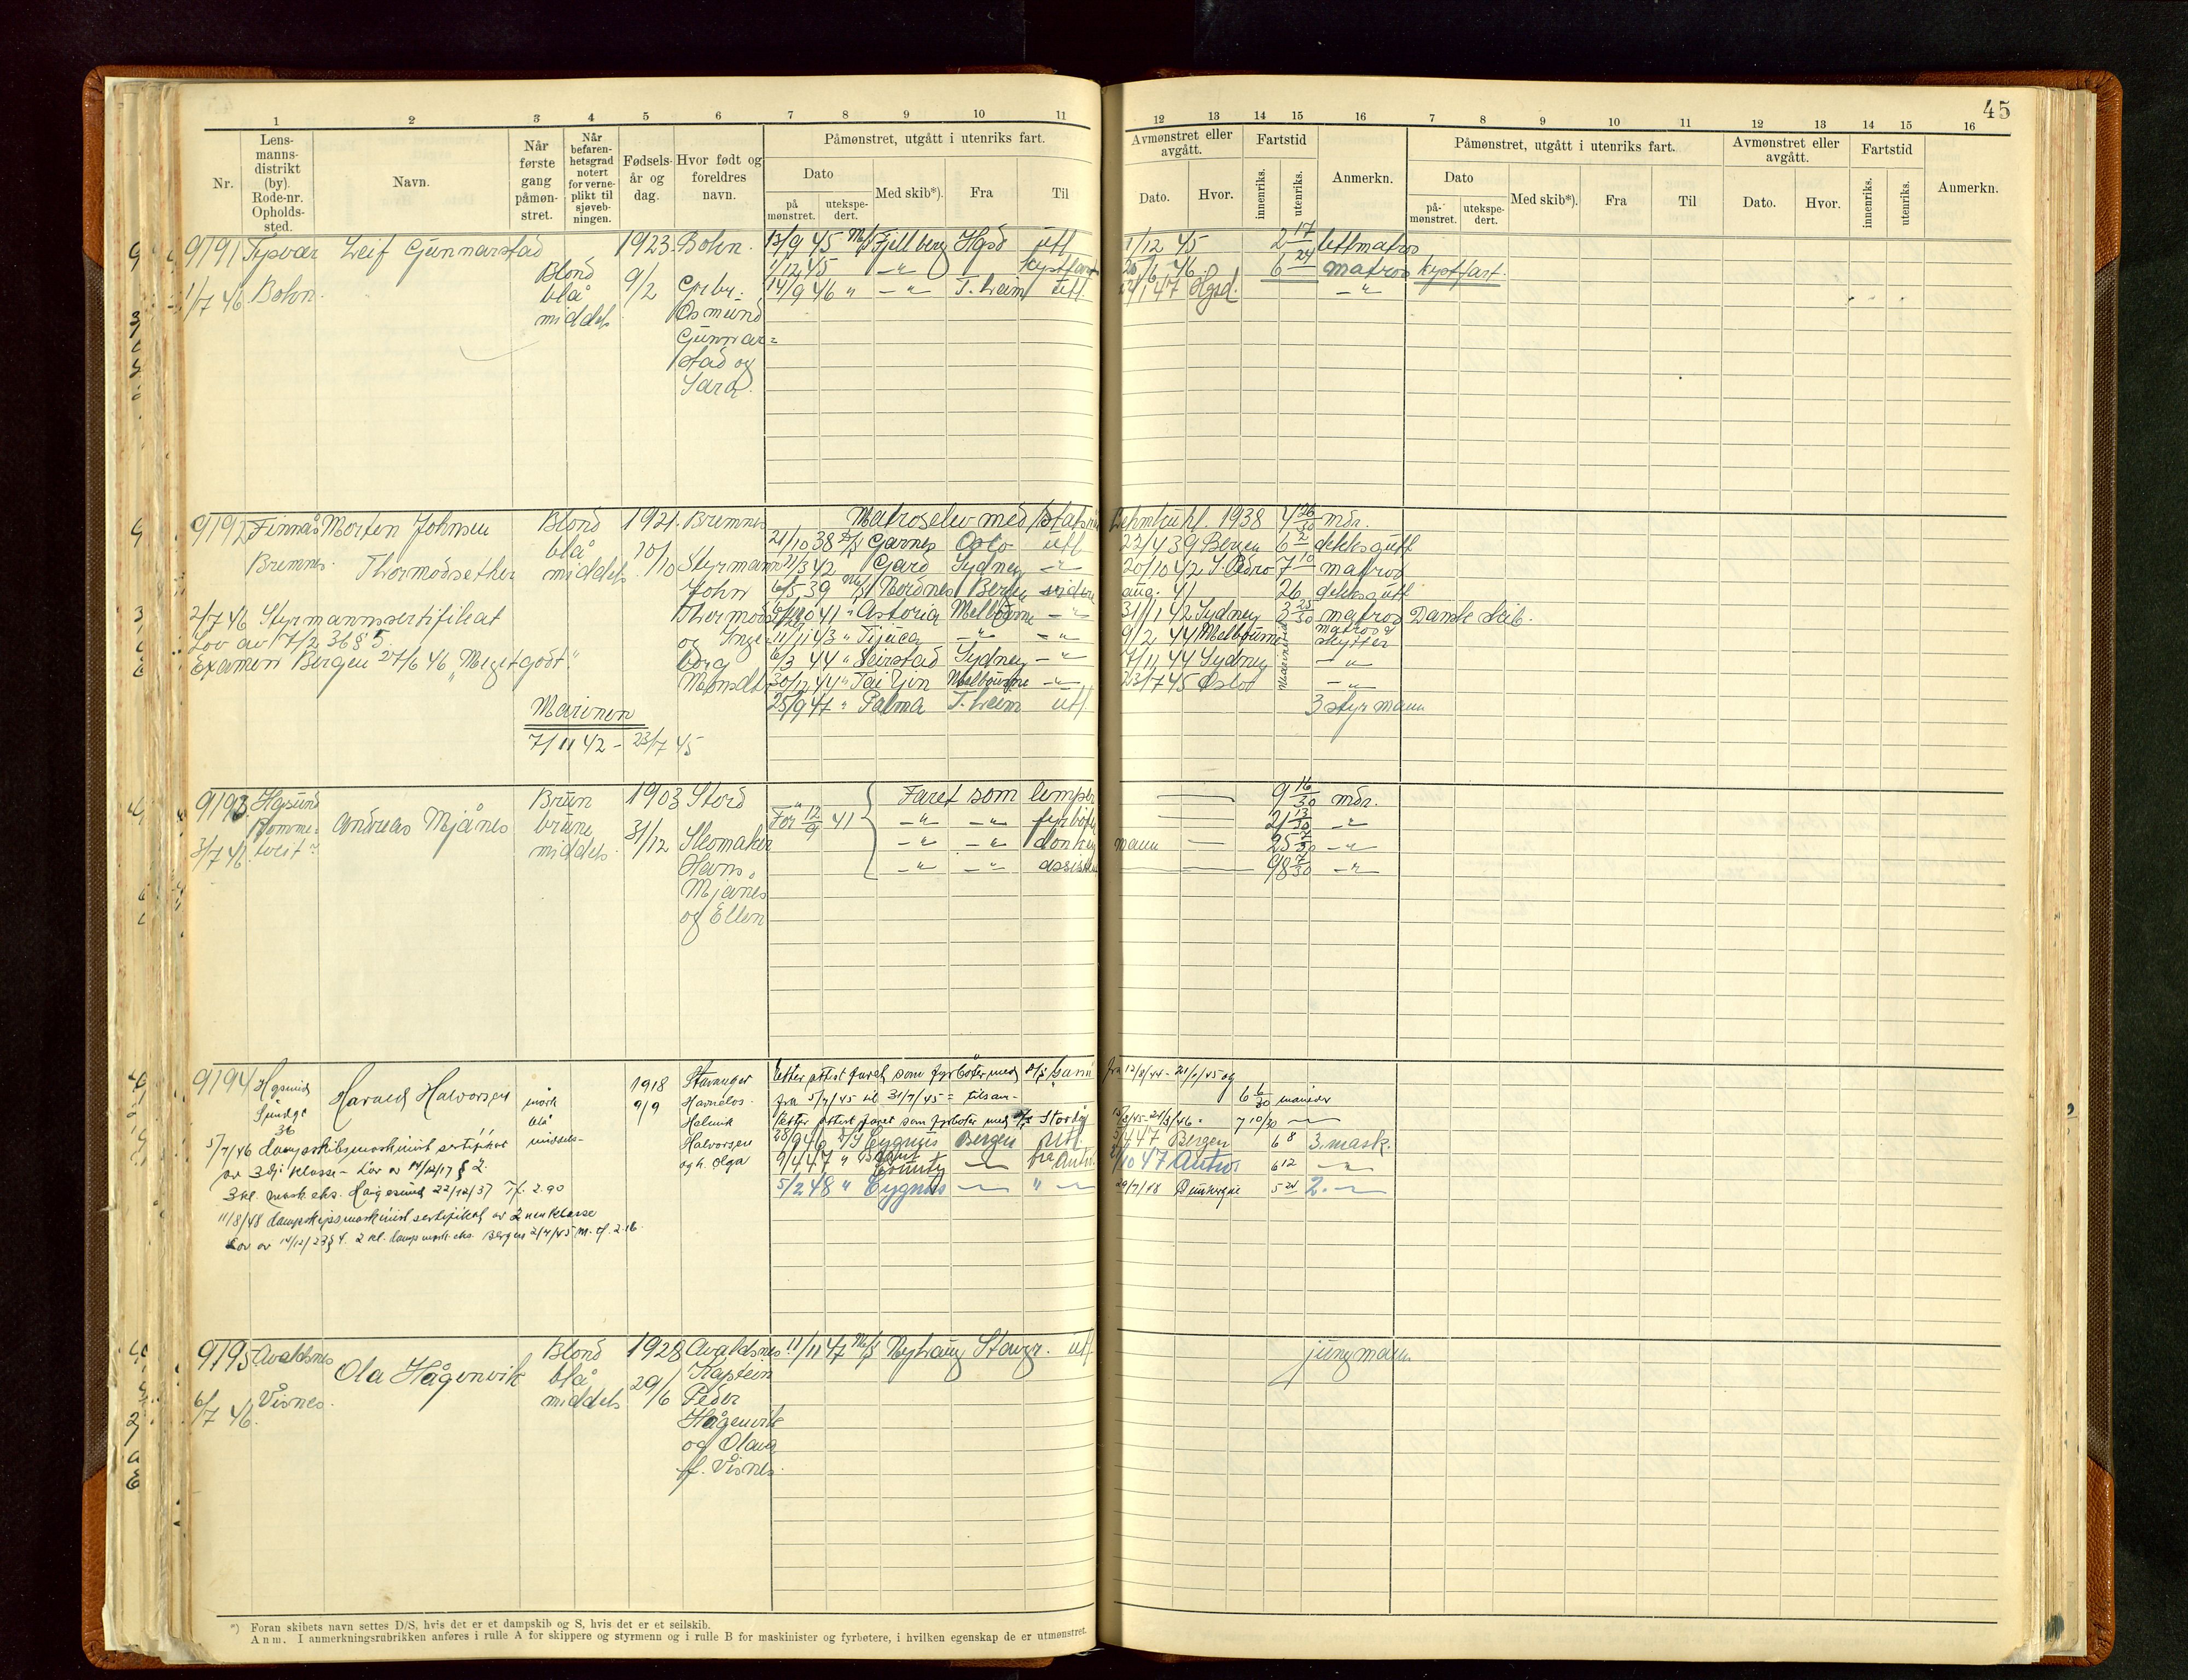 45
1 2 3 4 5 6 7 8 9 10 11
12 13 14 15 16 7 8 9 10 11 12 13 14 15 16
Nr.
Lens-
manns-
distrikt
(by).
Rode-nr.
Opholds-
sted.
Navn.
Når
første
gang
påmøn-
stret.
Når
befaren-
hetsgrad
notert
for verne-
plikt til
sjøveb-
ningen.
Fødsels-
år og
dag.
Hvor født og
foreldres
navn.
Påmønstret, utgått i utenriks fart.
Dato
på
mønstret.
utekspe-
dert.
Med skib*).
Fra
Til
Avmønstret eller
avgått.
Dato.
Hvor.
Fartstid
innenriks.
utenriks.
Anmerkn.
Påmønstret, utgått i utenriks fart.
Dato
på-
mønstret.
utekspe-
dert.
Med skib*).
Fra
Til
Avmønstret eller
avgått.
Dato.
Hvor.
Fartstid
innenriks.
utenriks.
Anmerkn.
9191 Tysvær Leif Gunnarstad 1923 Bokn. 13/9 45 M/S Fjellberg Hgsd utl 1/12 45 2 17 lettmatros
Blond 9/2 1/12 45 —"— kystfart 26/6 46. 6 24 matros kystfart.
1/7 46 Bokn. blå 14/9 46 " —"— utl. 47 Hgsd. —"—
middels Osmund
Gunnar=
stad og
Sara.
9192 Finnås Morten Johnsen Blond 1921. Bremnes Matroselev med Statsraad Lehmkuhl. 1938 4 26/30 mdr.
blå 21/10 38 D/S Garnes Oslo utl 23/4 39 Bergen 6 2 dekksgutt
Bremnes. Thormodsether middels 10/10 Styrmann 21/3 42 Gard Sydney —"— 20/10 42 S. Pedro 7 10 matros
John 6/5 39 M/S Nordnes Bergen videre aug. 41 26 dekksgutt
2/7 46 Styrmannssertifikat 41 " Astoria Melbourne —"— 31/1 42 Sydney 3 25/30 matros Dansk skib.
Lov av 17/2 36 § 5 og Inge= 11/11 43 " Tijuca —"— —"— 9/2 44 Melbourne matros & skytter
Examen Bergen 27/6 46 „Meget godt" borg 6/3 44 " Leirstad Sydney —"— 7/11 44 Sydney —"—
30/12 44 " Tai Yin Melbourne —"— 23/7 45 Oslo —"—
Marinen 25/9 47 " Palma utl 3 styrmann
7/11 42 - 23/7 45
9193 Hgsund Brun 1903 Stord Faret som lemper 9 16/30 mdr.
Andreas Mjånes brune Før 12/9 41 —"— —"— fyrbøter 21 13/30 —"—
3/7 46. middels. 31/12 Skomaker —"— —"— donkeymann 25 —"—
Hans —"— —"— assistent 98 7/30 —"—
Mjånes
og Ellen
9194 Hgsund Harald Halvorsen mørk 1918 Stavanger Etter attest faret som fyrbøter med
36 blå 9/9 fra 5/7/45 til 31/7/45 = tilsam- 6 6/30 måneder
middels- Halvorsen Etter attest faret som fyrbøter med 7 10/30
5/7/46 dampskibsmaskinist sertifikat og h. Olga 46 D/S Cygnus Bergen utl. 47 Bergen 6 8 3. mask.
av 3dje klasse - Lov av 14/12/17 § 2. 9/4 47 " County —"— fra Antw. /10 47 Antw. 6 12 —"—
3 kl. mask. eks. Haugesund 22/12/37 Tf. 2.90 5/2 48 " Cygnus —"— " —"— 29/7/48 5 24 2. —"—
11/8/48 dampskipsmaskinist sertifikat av 2nen klasse
Lov av 14/12/23 § 4. 2 kl. damp mask. eks. Bergen 2/7/45 M. tf. 2.16.
9195 Avaldsnes Ola Hågenvik Blond 1928 Avaldsnes 11/11 47 M/S Nyhaug Stavgr. utl jungmann
blå Kaptein
6/7 46. Visnes. middels 29/6 Peder
Hågenvik
og Olava
f. Visnes.
*) Foran skibets navn settes D/S, hvis det er et dampskib og S, hvis det er et seilskib.
Anm. I anmerkningsrubrikken anføres i rulle A for skippere og styrmenn og i rulle B for maskinister og fyrbøtere, i hvilken egenskap de er utmønstret.